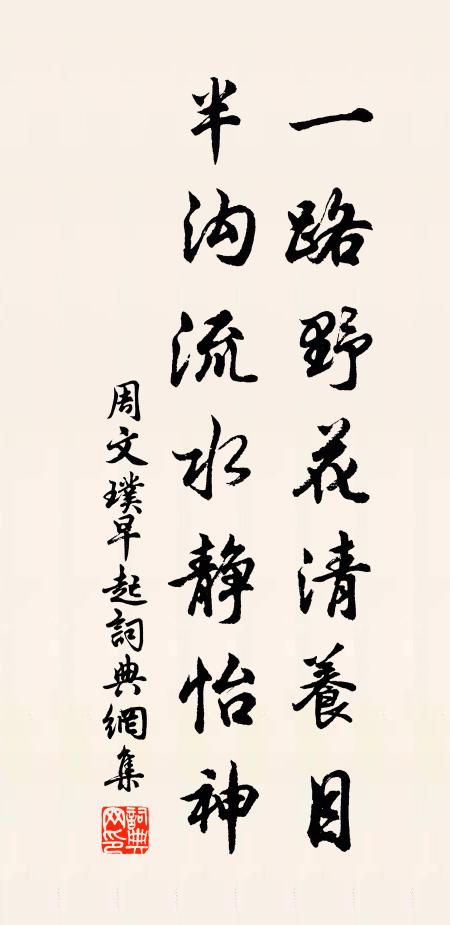 一路野花清養目
半沟流水静怡神
周文璞早起詞典網集
詞典網印